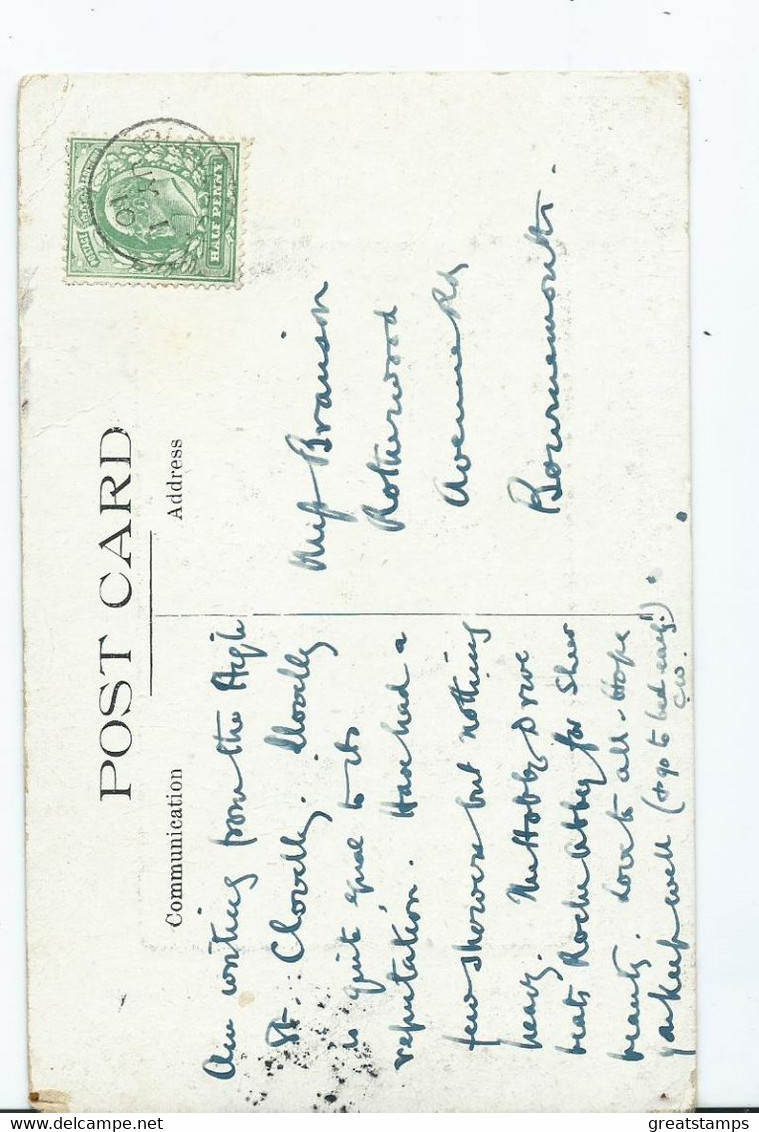 POST CARD
Communication
Address
Am writing from the High
St. Clovelly. Clovelly
is quite equal to its
reputation. Have had a
few showers but nothing
heavy. The Hobby Drive
beats Roche Abbey for sheer
beauty. Love to all. Hope
yo keep well (& go to bed early!).
CW.
Miss Branson
Rotherwood
Avenue Rd
Bournemouth.
HALF PENNY
JY 1
10
greatstamps